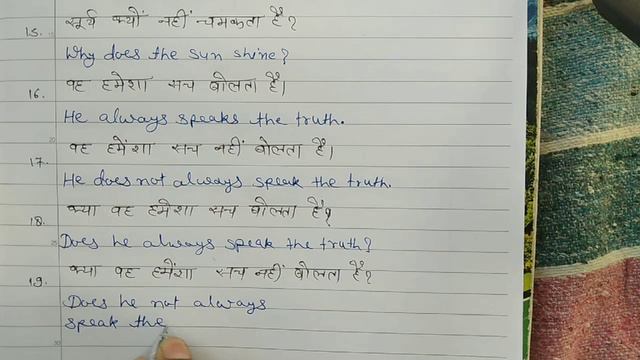 15. सूर्य क्यों नहीं चमकता है?
Why does the sun shine?
वह हमेशा सच बोलता है।
16.
He always speaks the truth.
वह हमेंशा सच नहीं बोलता है।
17.
He does not always speak the truth.
क्या वह हमेशा सच बोलता है?
18.
Does he always speak the truth?
क्या वह हमेंशा सच नहीं बोलता है?
19.
Does he not always
speak the